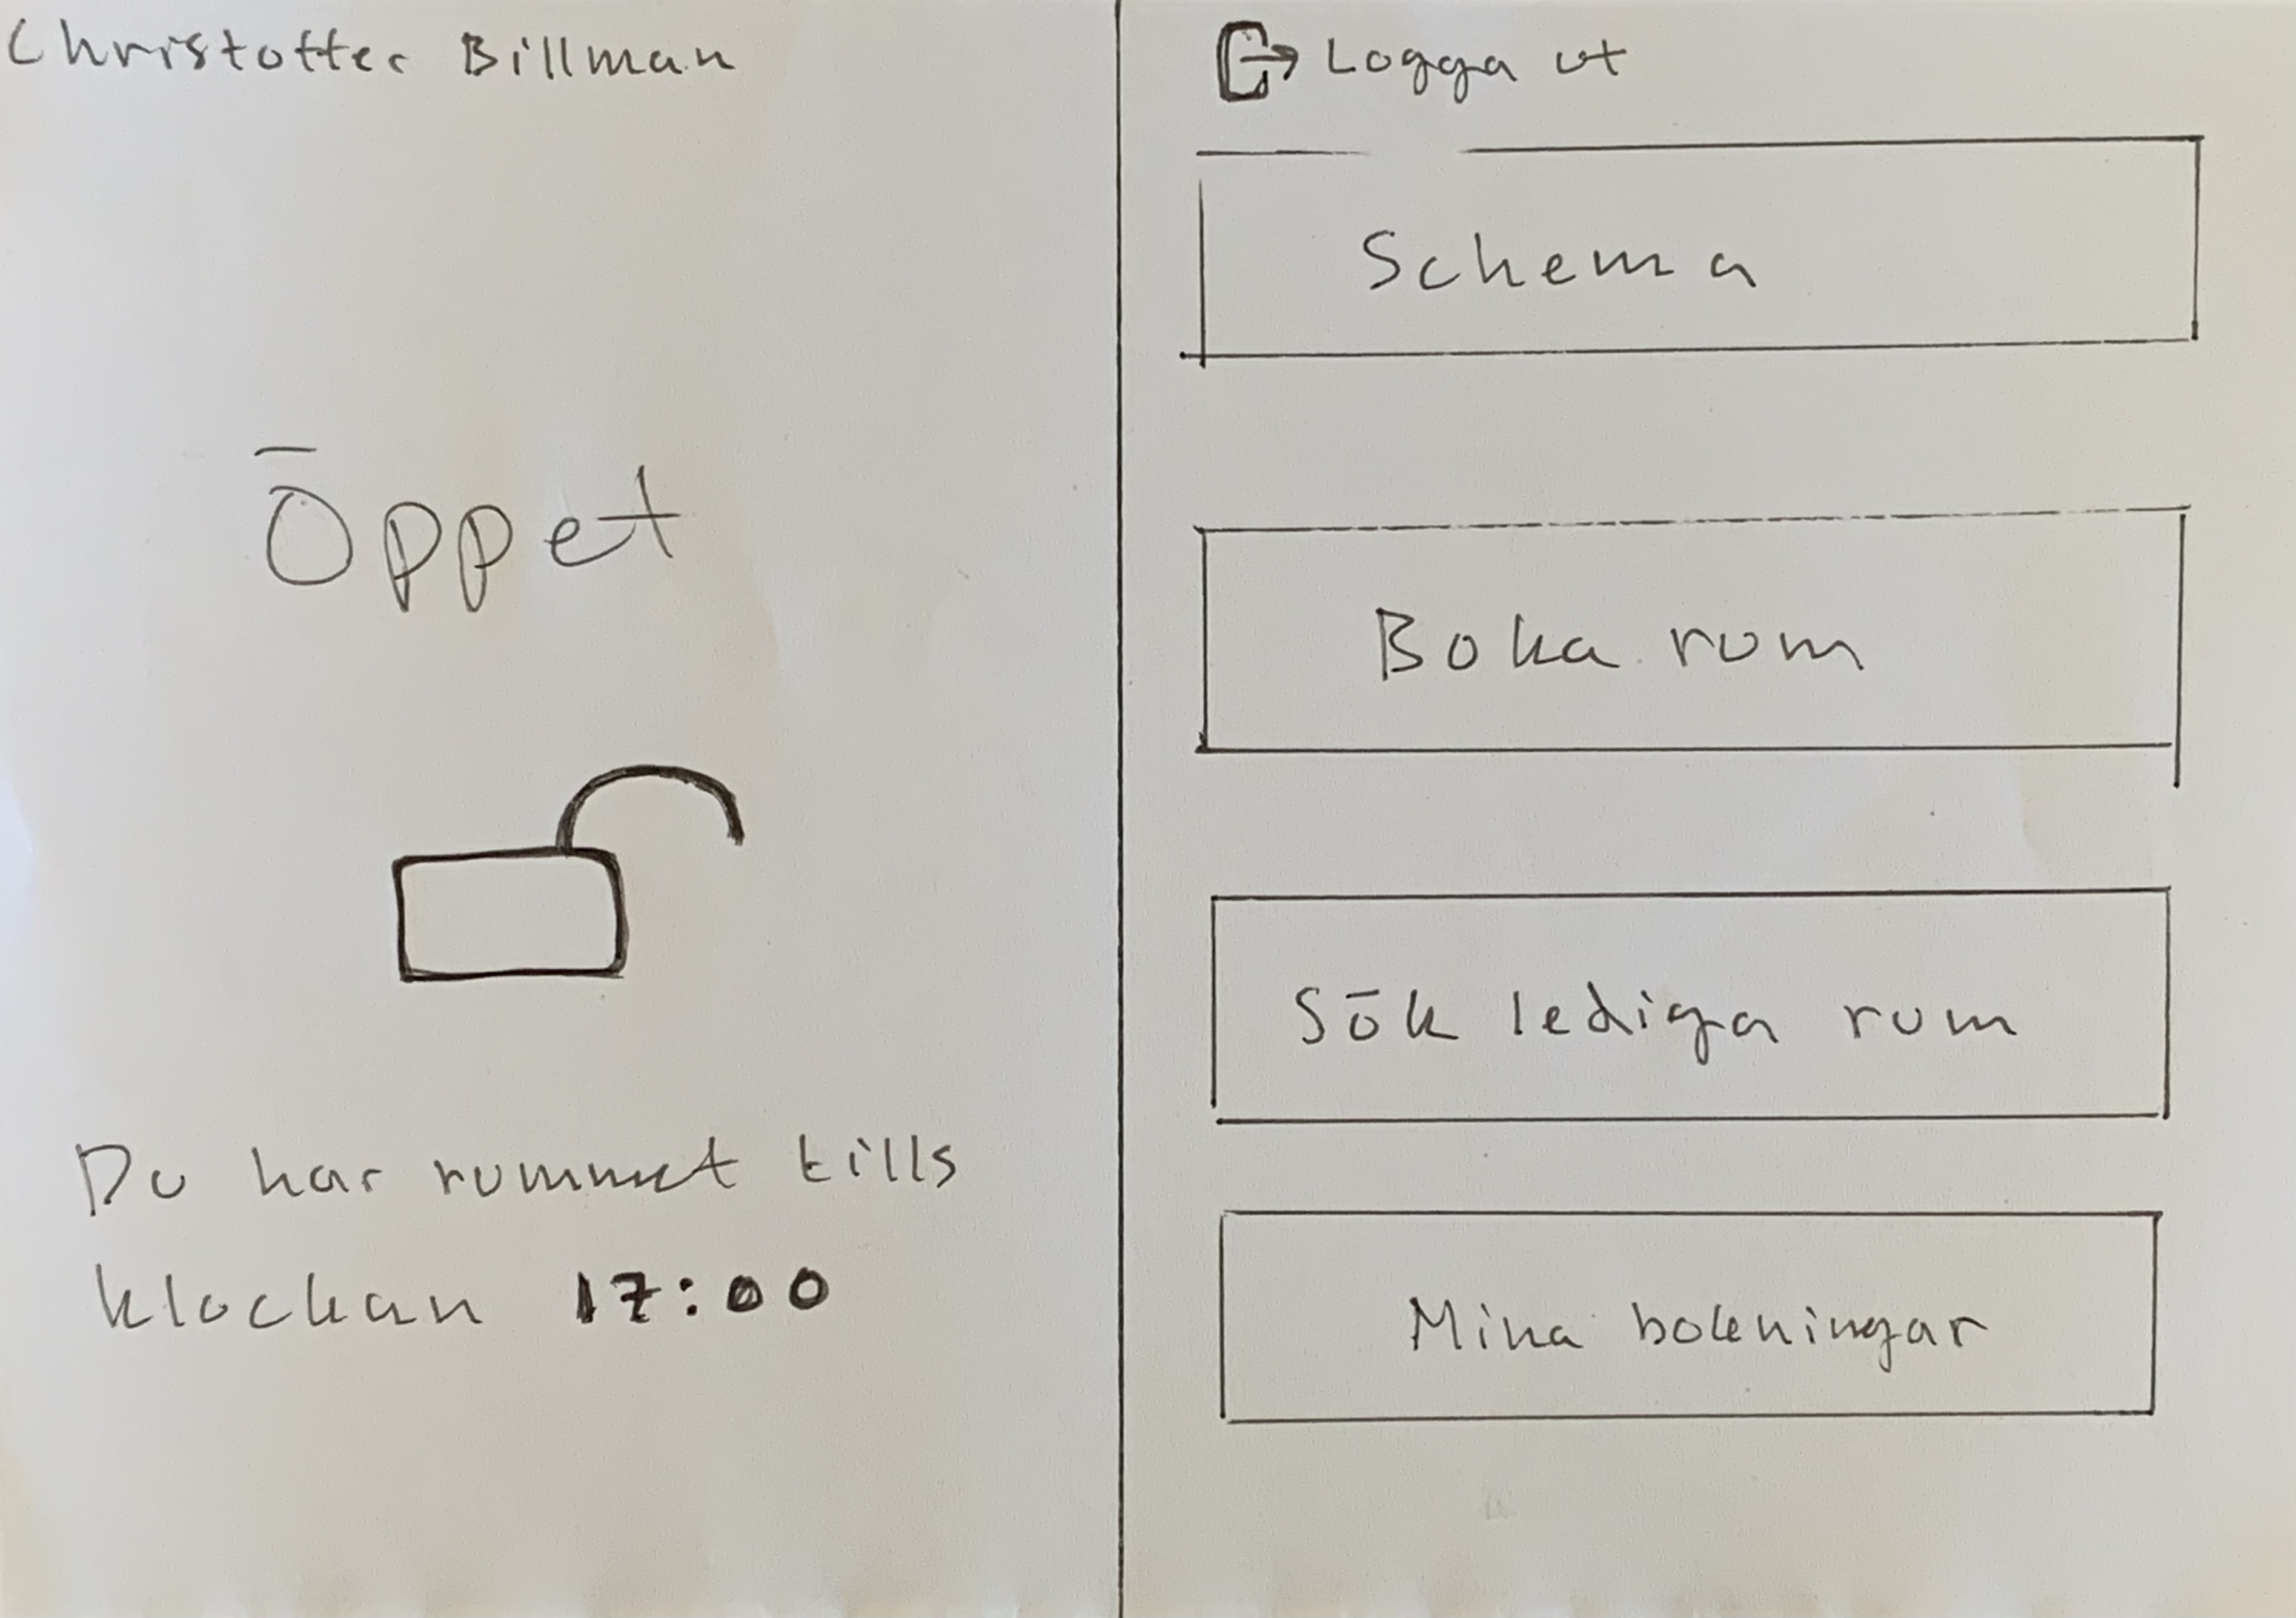 Christoffer Billman
Öppet
Du har rummet tills
klockan 17:00
Logga ut
Schema
Boka rum
Sök lediga rum
Mina bokningar